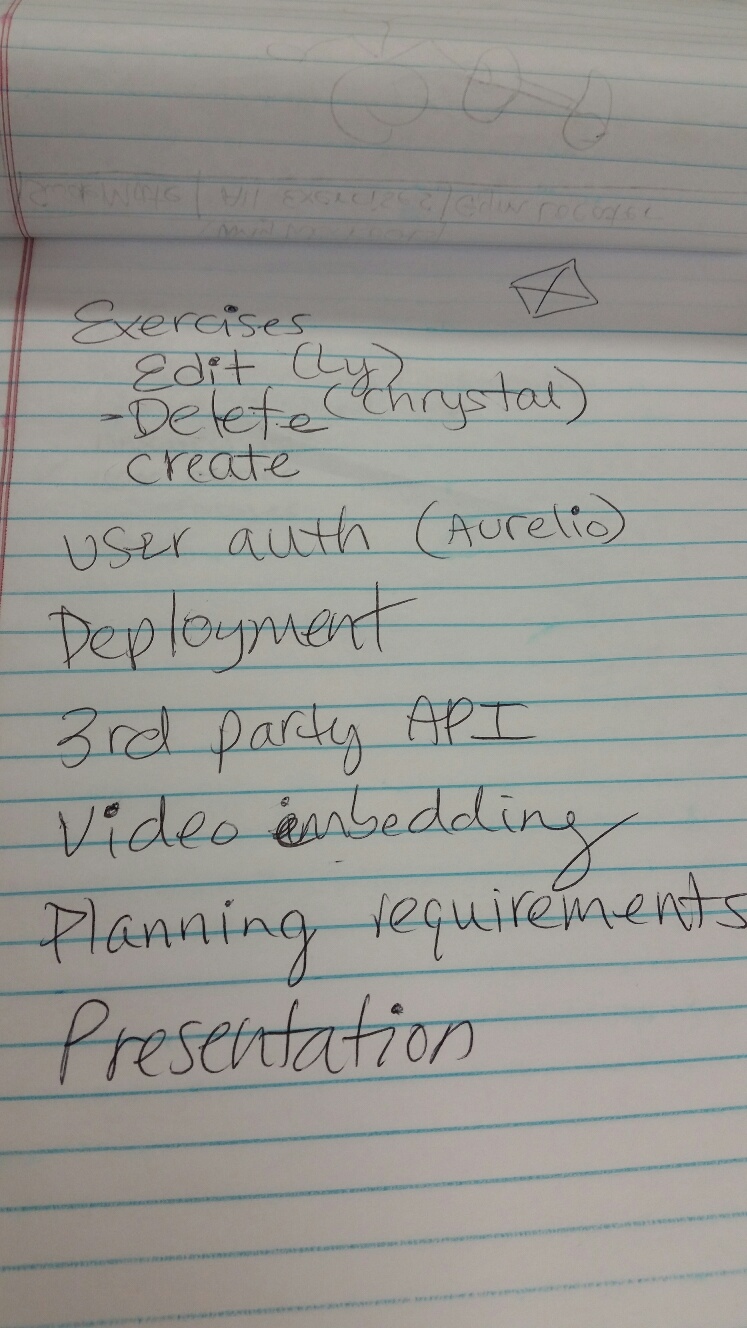 Exercises
Edit (Ly)
-Delete (Chrystal)
create
User auth (Aurelio)
Deployment
3rd party API
Video embedding
Planning requirements
Presentation